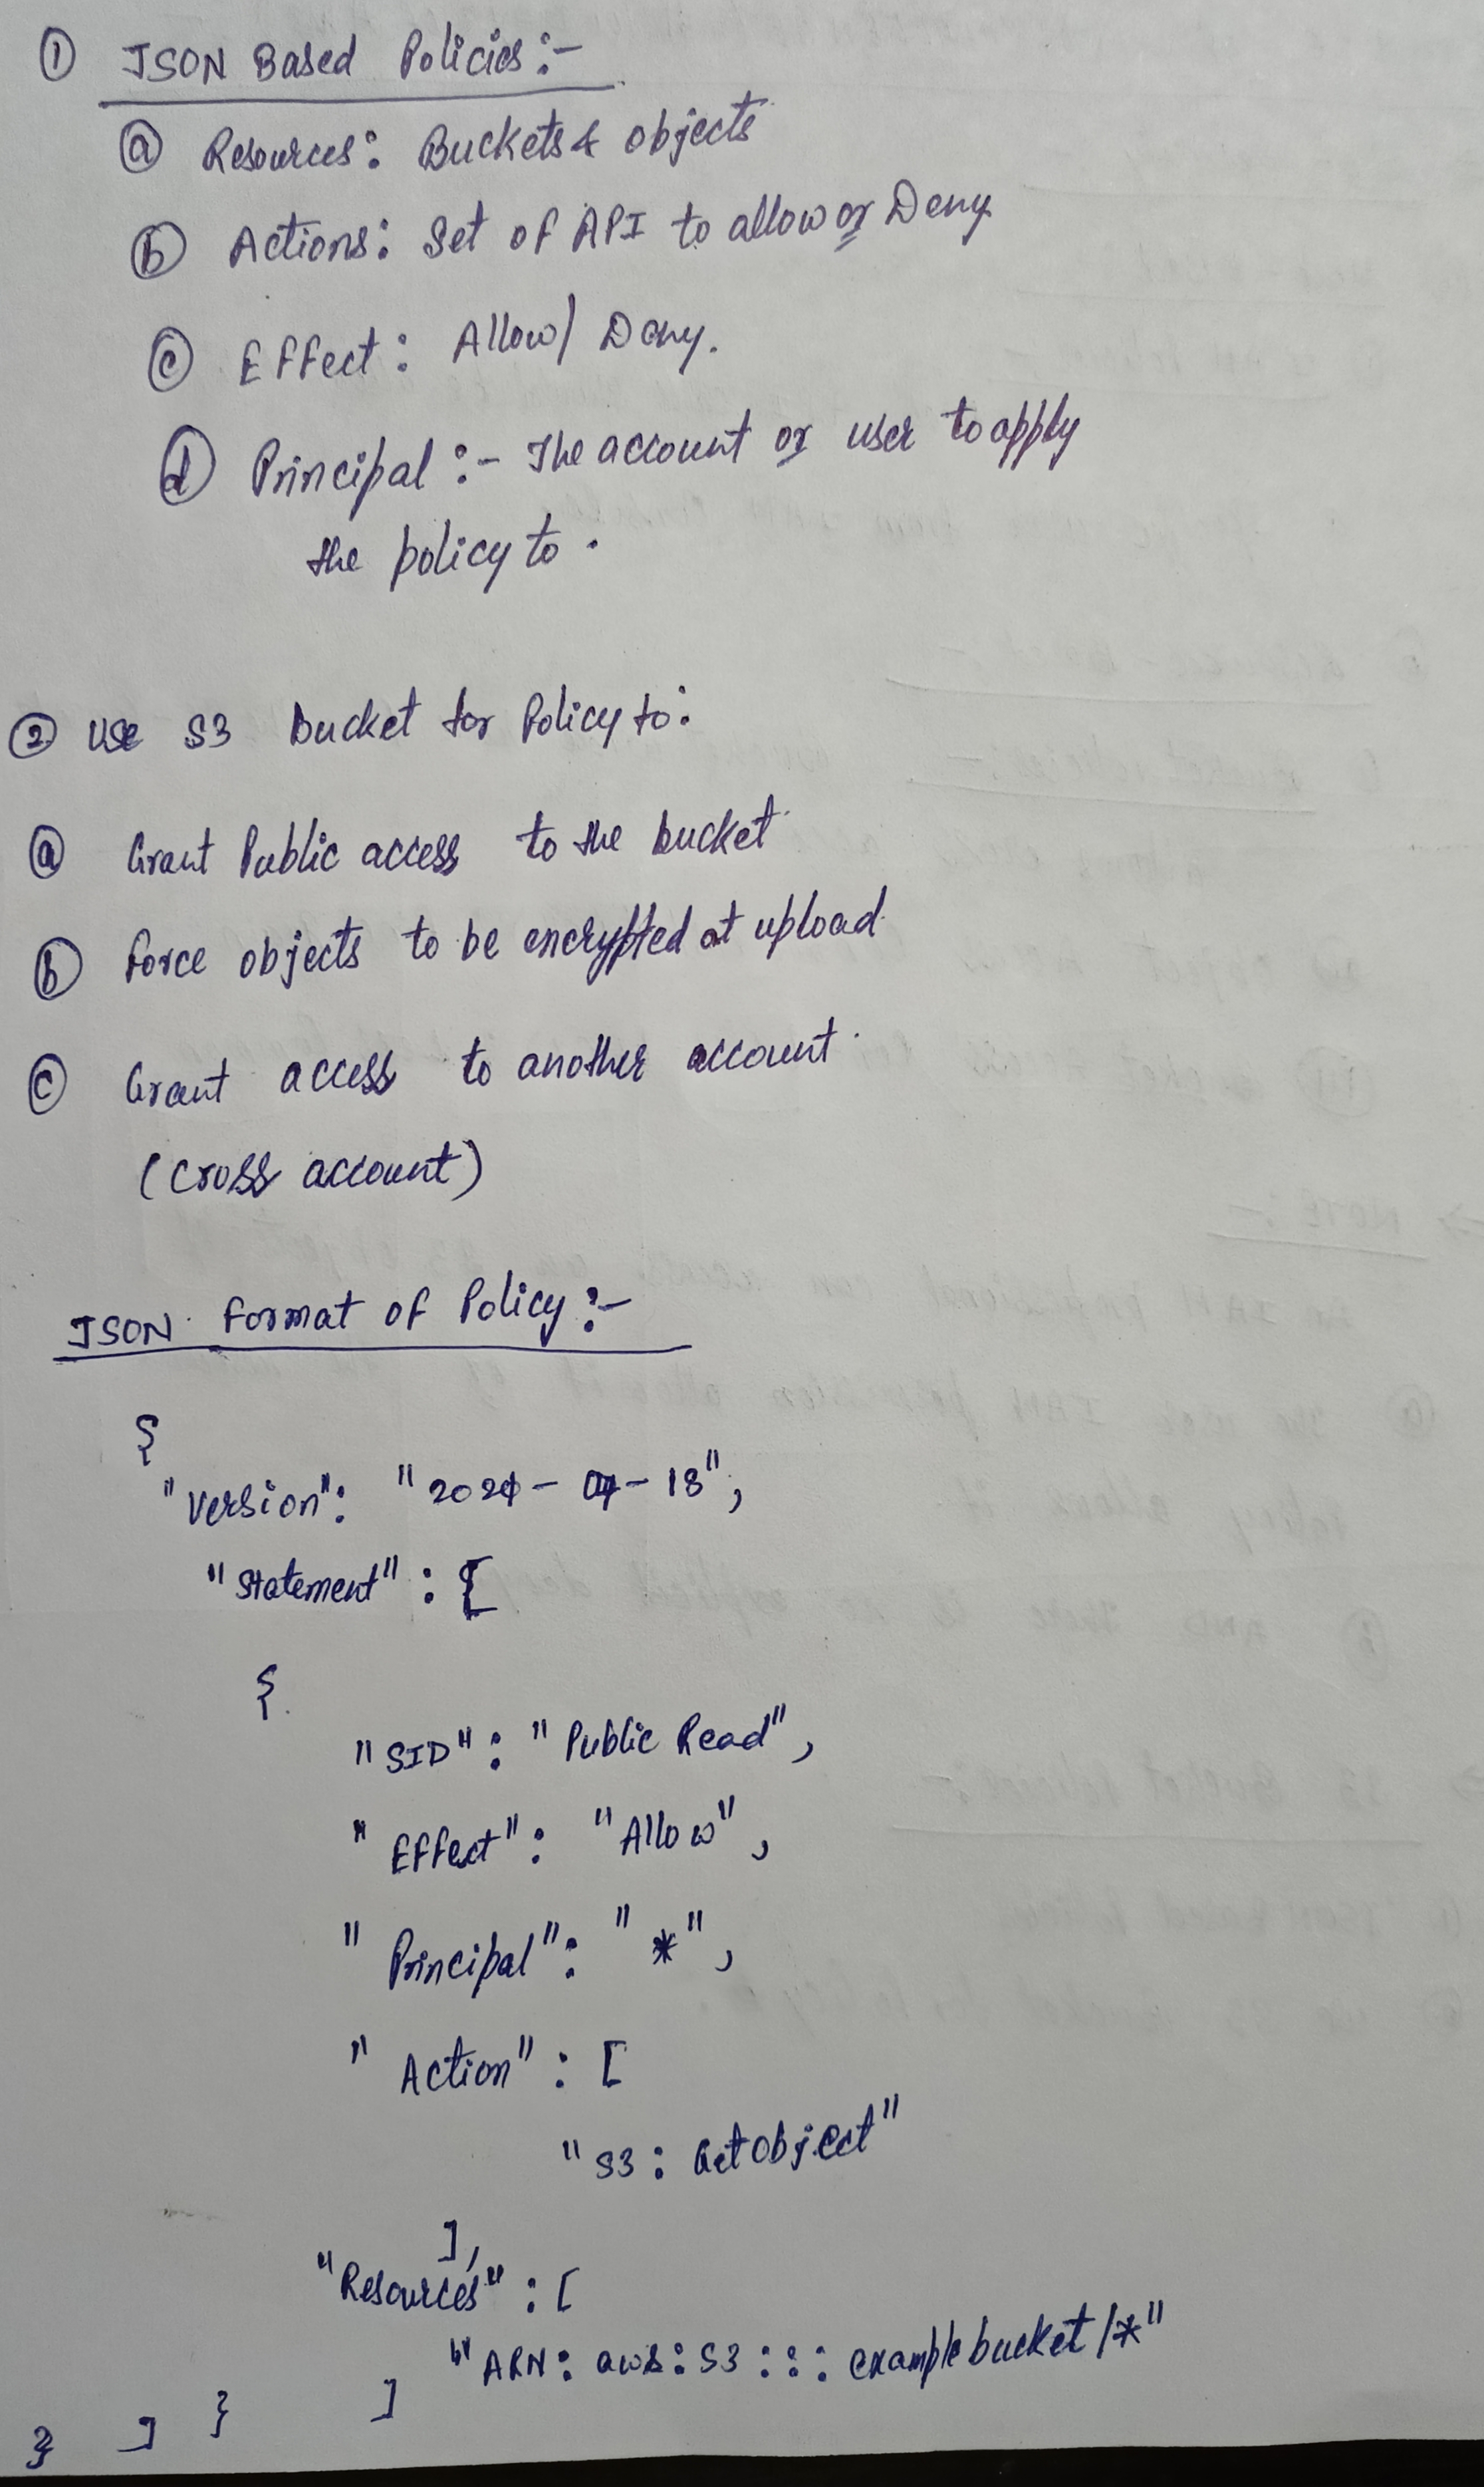 ① JSON Based Policies:-
ⓐ Resources: Buckets & objects
ⓑ Actions: Set of API to allow or Deny
ⓒ Effect: Allow/ Deny.
ⓓ Principal:- The account or user to apply
the policy to.
② Use S3 Bucket for Policy to:
ⓐ Grant Public access to the bucket
ⓑ Force objects to be encrypted at upload
ⓒ Grant access to another account.
(cross account)
JSON Format of Policy:-
{
"Version": "2024-04-18",
"Statement": [
{
"SID": "Public Read",
"Effect": "Allow",
"Principal": "*",
"Action": [
"S3: Getobject"
],
"Resources": [
"ARN: aws:S3:::examplebucket/*"
]
}
]
}